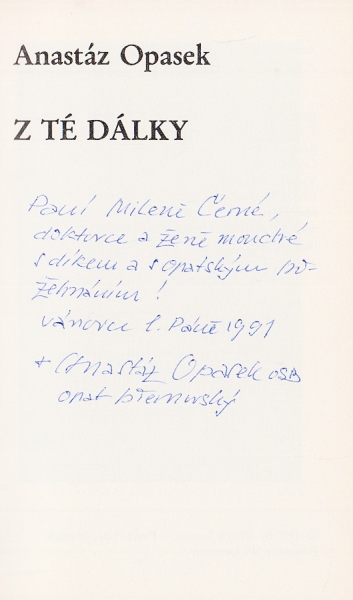 Anastáz Opasek
Z TÉ DÁLKY
Paní Mileně Černé,
doktorce a ženě moudré
s díkem a s opatským po-
žehnáním!
vánoce l. Páně 1991
+ Anastáz Opasek OSB
opat břevnovský